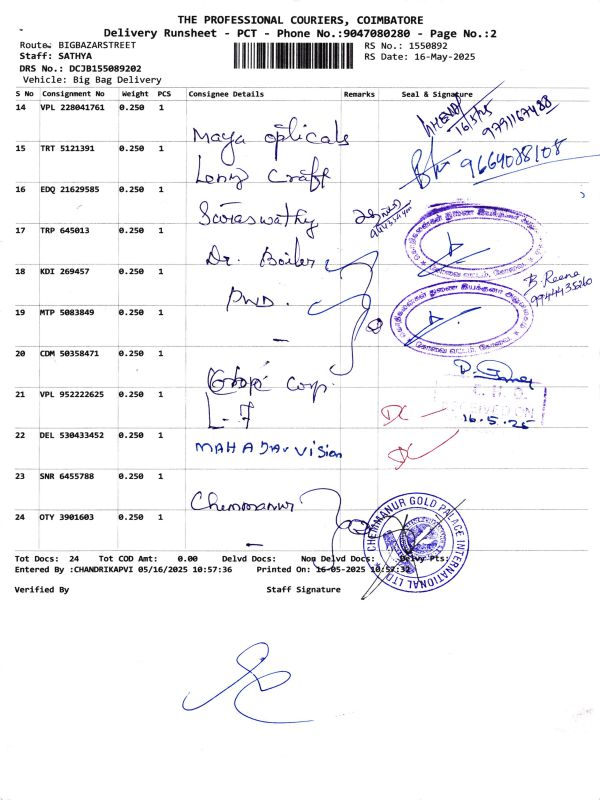 THE PROFESSIONAL COURIERS, COIMBATORE
Delivery Runsheet - PCT - Phone No.:9047080280 - Page No.:2
Route: BIGBAZARSTREET
RS No.: 1550892
Staff: SATHYA
RS Date: 16-May-2025
DRS No.: DCJB155089202
Vehicle: Big Bag Delivery
S No Consignment No Weight PCS Consignee Details Remarks Seal & Signature
14 VPL 228041761 0.250 1 Maya opticals
16/5/25
9791167488
15 TRT 5121391 0.250 1 Lenz Craft
9664038108
16 EDQ 21629585 0.250 1 Saraswathy
17 TRP 645013 0.250 1 Dr. Boiler
18 KDI 269457 0.250 1 PWD.
B. Reena
9944435260
19 MTP 5083849 0.250 1 -
20 CDM 50358471 0.250 1 Corp.
21 VPL 952222625 0.250 1 L-7
DC
16.5.25
22 DEL 530433452 0.250 1 MAHADAV VISION
DC
23 SNR 6455788 0.250 1 Chemmanur
24 OTY 3901603 0.250 1 -
CHEMMANUR GOLD PALACE INTERNATIONAL LTD
Tot Docs: 24 Tot COD Amt: 0.00 Delvd Docs: Non Delvd Docs: Delvy Pts:
Entered By :CHANDRIKAPVI 05/16/2025 10:57:36 Printed On: 16-05-2025 10:57:32
Verified By Staff Signature